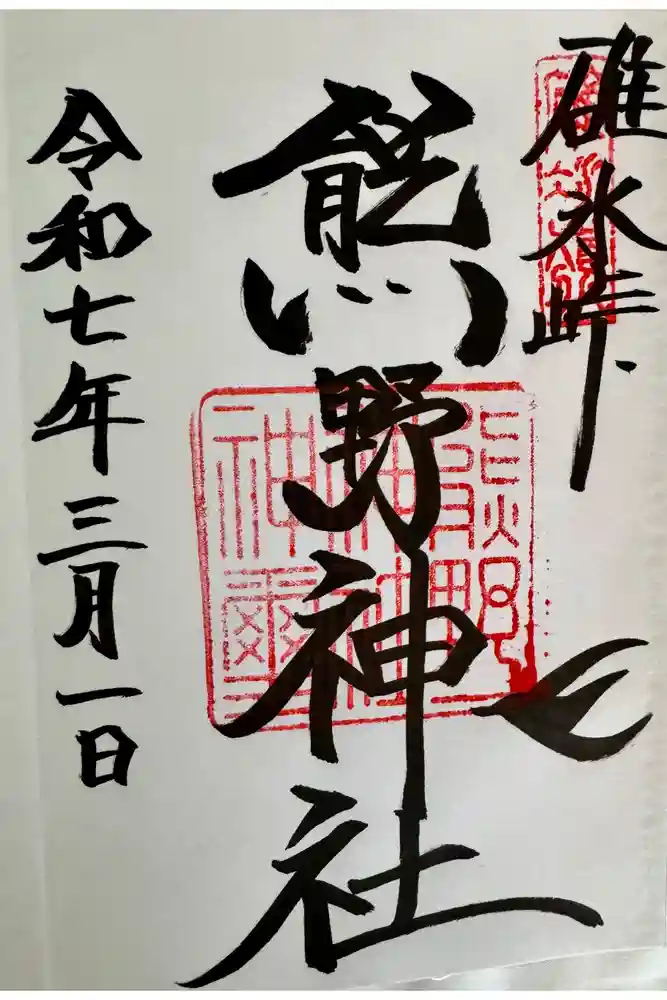 碓氷峠
熊野神社
令和七年三月一日
熊野
神社
神璽